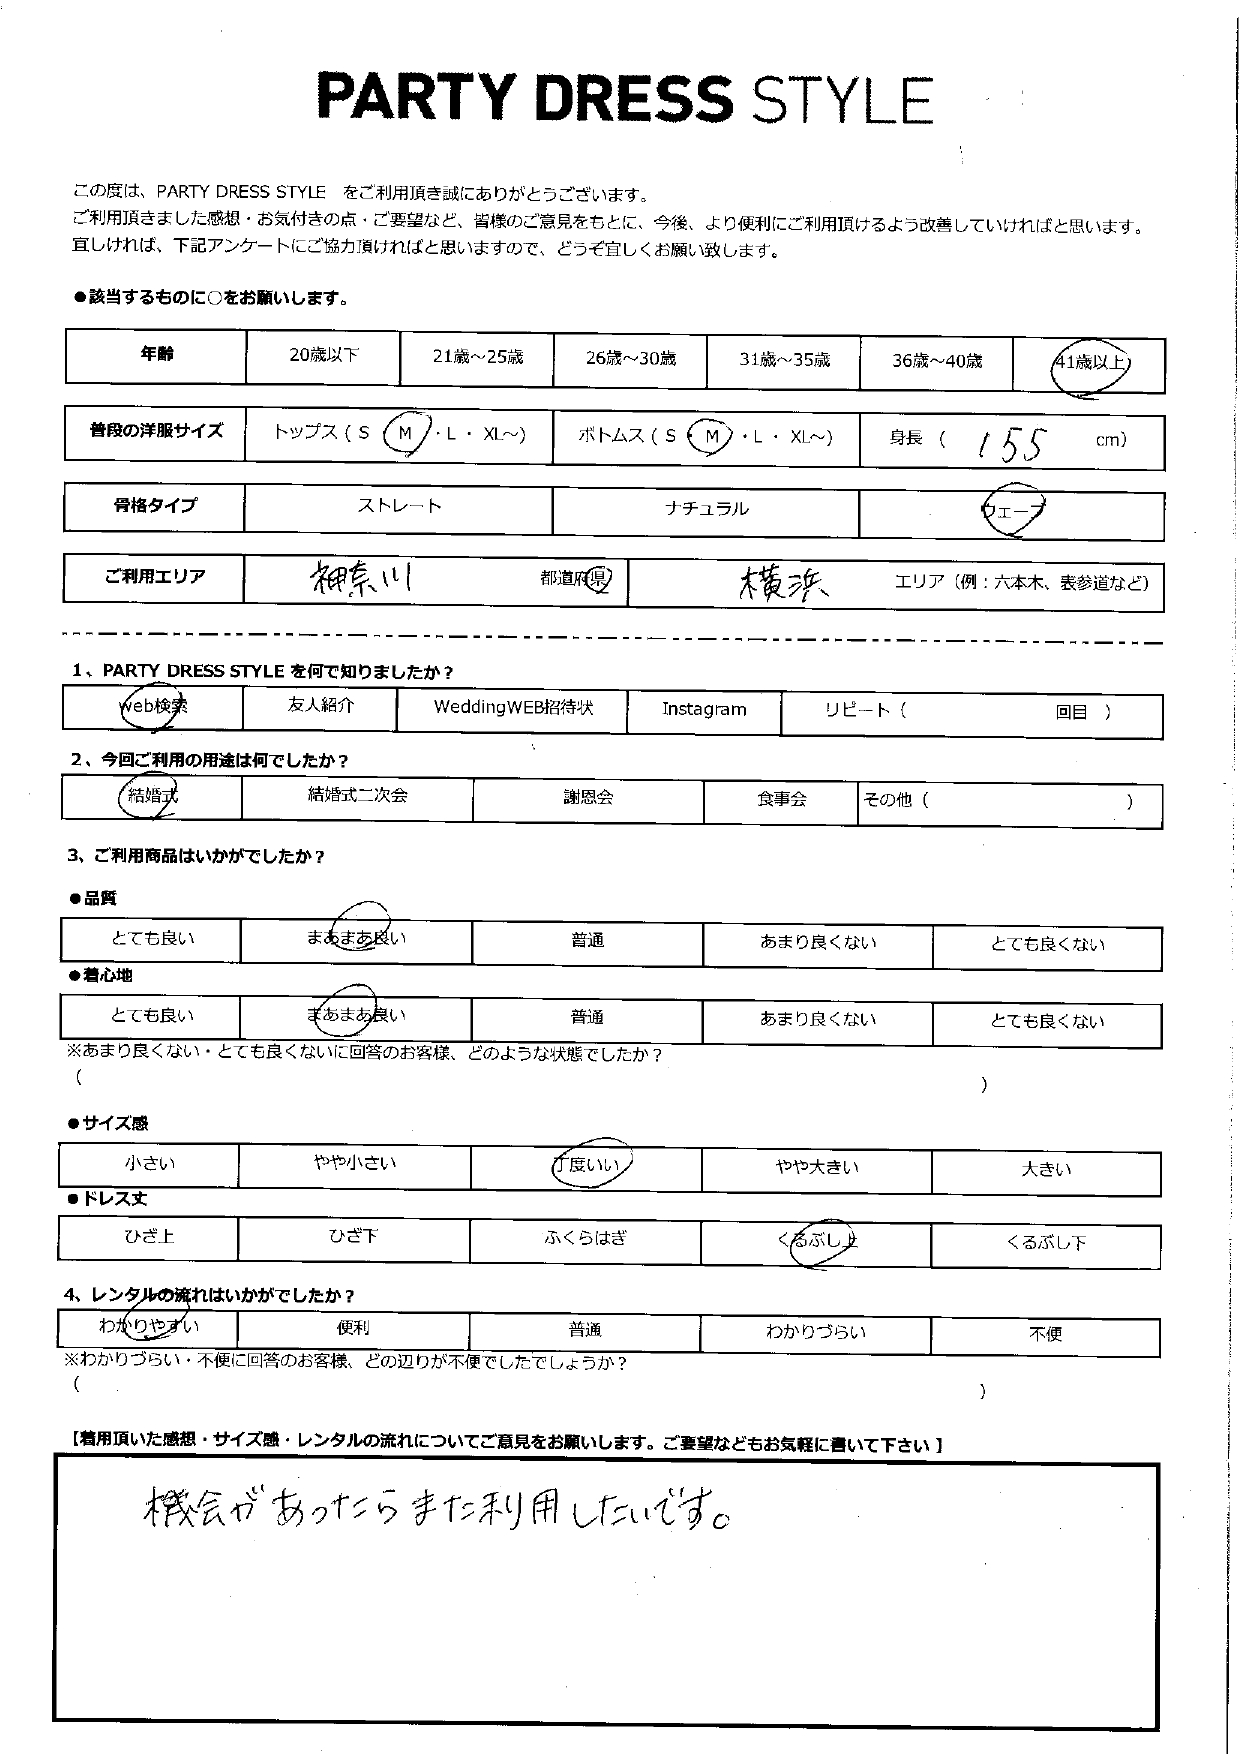 PARTY DRESS STYLE
この度は、PARTY DRESS STYLE をご利用頂き誠にありがとうございます。
ご利用頂きました感想・お気付きの点・ご要望など、皆様のご意見をもとに、今後、より便利にご利用頂けるよう改善していければと思います。
宜しければ、下記アンケートにご協力頂ければと思いますので、どうぞ宜しくお願い致します。
●該当するものに○をお願いします。
年齢 20歳以下 21歳～25歳 26歳～30歳 31歳～35歳 36歳～40歳 41歳以上
普段の洋服サイズ トップス（ S ・ M ・ L ・ XL～） ボトムス（ S ・ M ・ L ・ XL～） 身長（ 155 cm）
骨格タイプ ストレート ナチュラル ウェーブ
ご利用エリア 神奈川 都道府県 横浜 エリア（例：六本木、表参道など）
1、PARTY DRESS STYLE を何で知りましたか？
web検索 友人紹介 WeddingWEB招待状 Instagram リピート（ 回目 ）
2、今回ご利用の用途は何でしたか？
結婚式 結婚式二次会 謝恩会 食事会 その他（ ）
3、ご利用商品はいかがでしたか？
●品質
とても良い まあまあ良い 普通 あまり良くない とても良くない
●着心地
とても良い まあまあ良い 普通 あまり良くない とても良くない
※あまり良くない・とても良くないに回答のお客様、どのような状態でしたか？
（ ）
●サイズ感
小さい やや小さい 丁度いい やや大きい 大きい
●ドレス丈
ひざ上 ひざ下 ふくらはぎ くるぶし上 くるぶし下
4、レンタルの流れはいかがでしたか？
わかりやすい 便利 普通 わかりづらい 不便
※わかりづらい・不便に回答のお客様、どの辺りが不便でしたでしょうか？
（ ）
【着用頂いた感想・サイズ感・レンタルの流れについてご意見をお願いします。ご要望などもお気軽に書いて下さい】
機会があったらまた利用したいです。